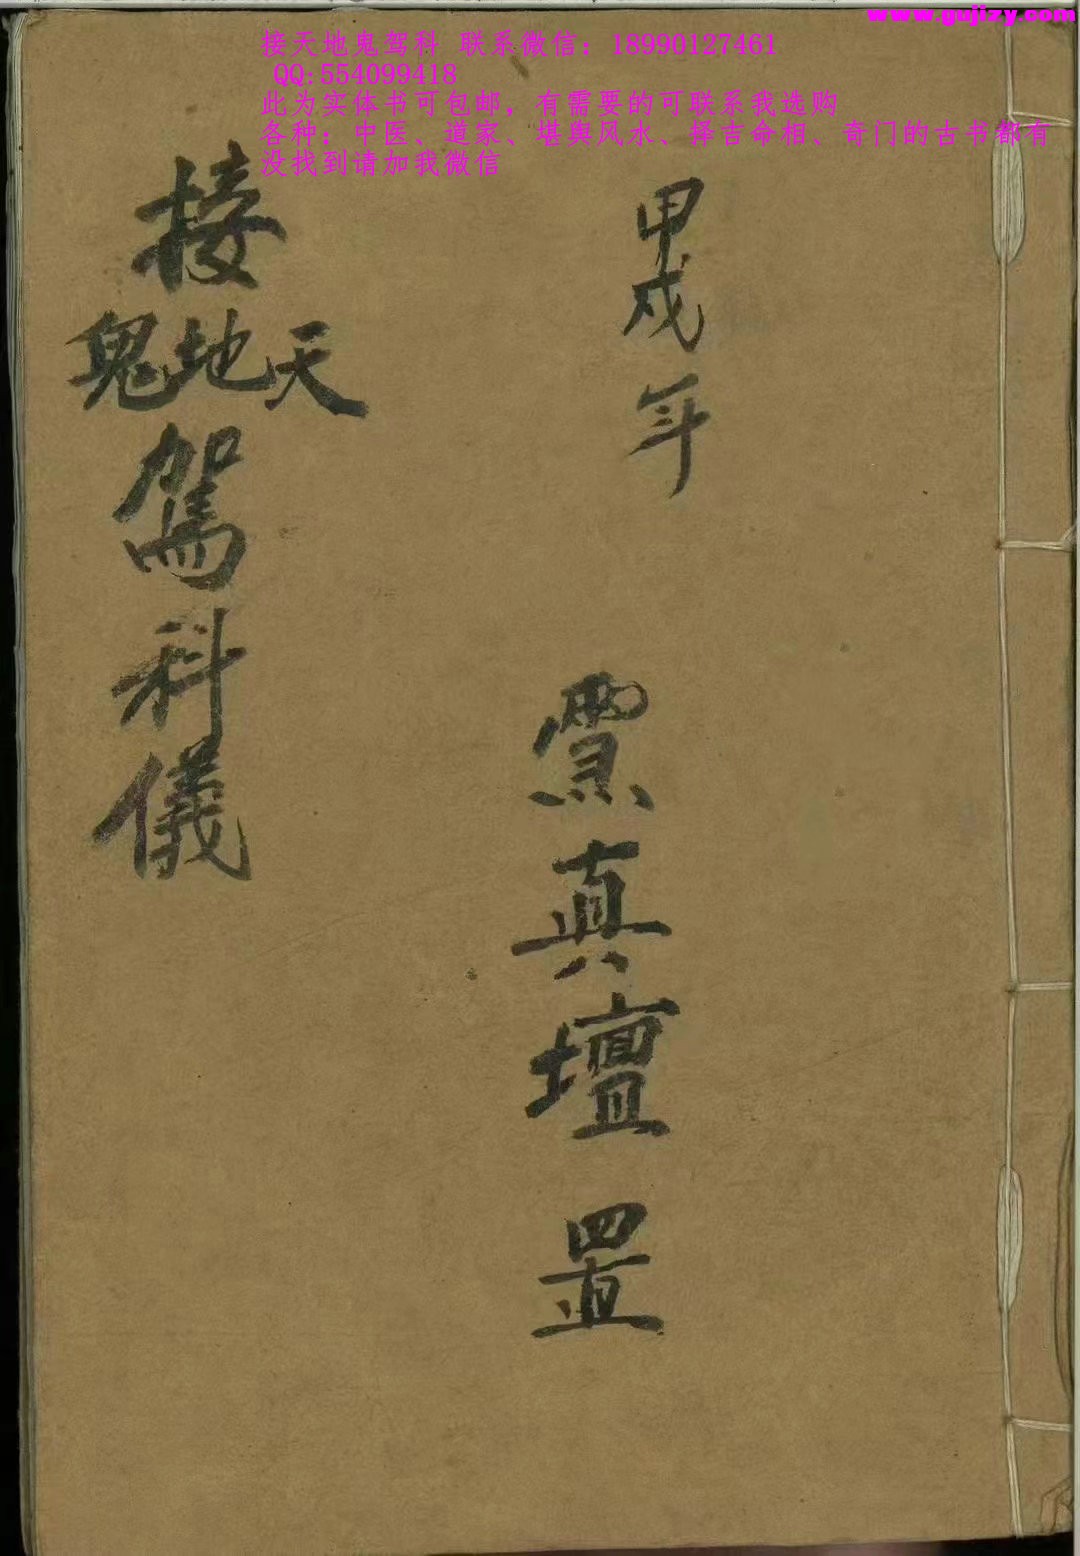 www.gujizy.com
接天地鬼驾科 联系微信：18990127461
QQ:554099418
此为实体书可包邮，有需要的可联系我选购
各种：中医、道家、堪舆风水、择吉命相、奇门的古书都有
没找到请加我微信
甲戌年
真壇置
接天地鬼駕科儀